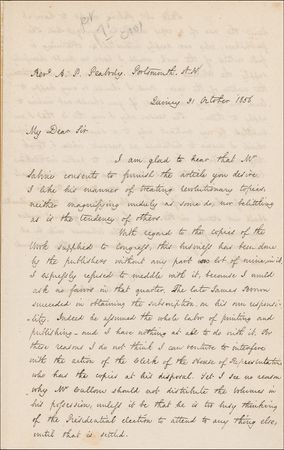 Revd. A. P. Peabody. Portsmouth. N.H.
Quincy 31 October 1856
My Dear Sir
I am glad to hear that Mr
Sabine consents to furnish the article you desire.
I like his manner of treating revolutionary topics,
neither magnifying unduly as some do, nor belittling
as is the tendency of others.
With regard to the copies of the
Work supplied to Congress, this business has been done
by the publishers without any part or lot of mine in it.
I expressly refused to meddle with it, because I would
ask no favors in that quarter. The late James Brown
succeeded in obtaining the subscription on his own responsi-
-bility. Indeed he assumed the whole labor of printing and
publishing and I have nothing at all to do with it. For
these reasons I do not think I can venture to interfere
with the action of the Clerk of the House of Representatives
who has the copies at his disposal. Yet I see no reason
why Mr Cullom should not distribute the volumes in
his possession, unless it be that he is too busy thinking
of the Presidential election to attend to any thing else,
until that is settled.